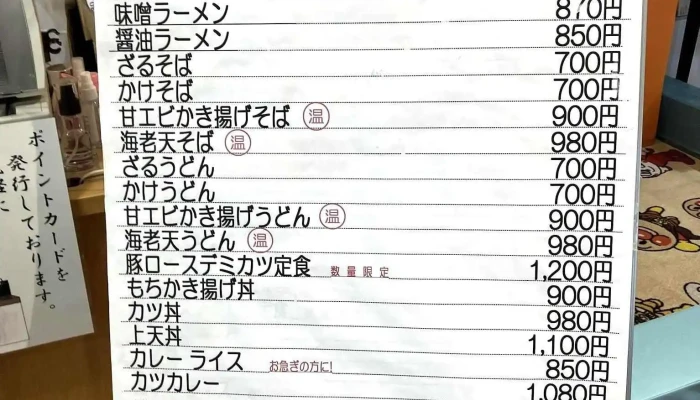 味噌ラーメン 870円
醤油ラーメン 850円
ざるそば 700円
かけそば 700円
甘エビかき揚げそば 温 900円
海老天そば 温 980円
ざるうどん 700円
かけうどん 700円
甘エビかき揚げうどん 温 900円
海老天うどん 温 980円
豚ロースデミカツ定食 数量限定 1,200円
もちかき揚げ丼 900円
カツ丼 980円
上天丼 1,100円
カレーライス お急ぎの方に! 850円
カツカレー 1,080円
ポイントカードを
発行しております。